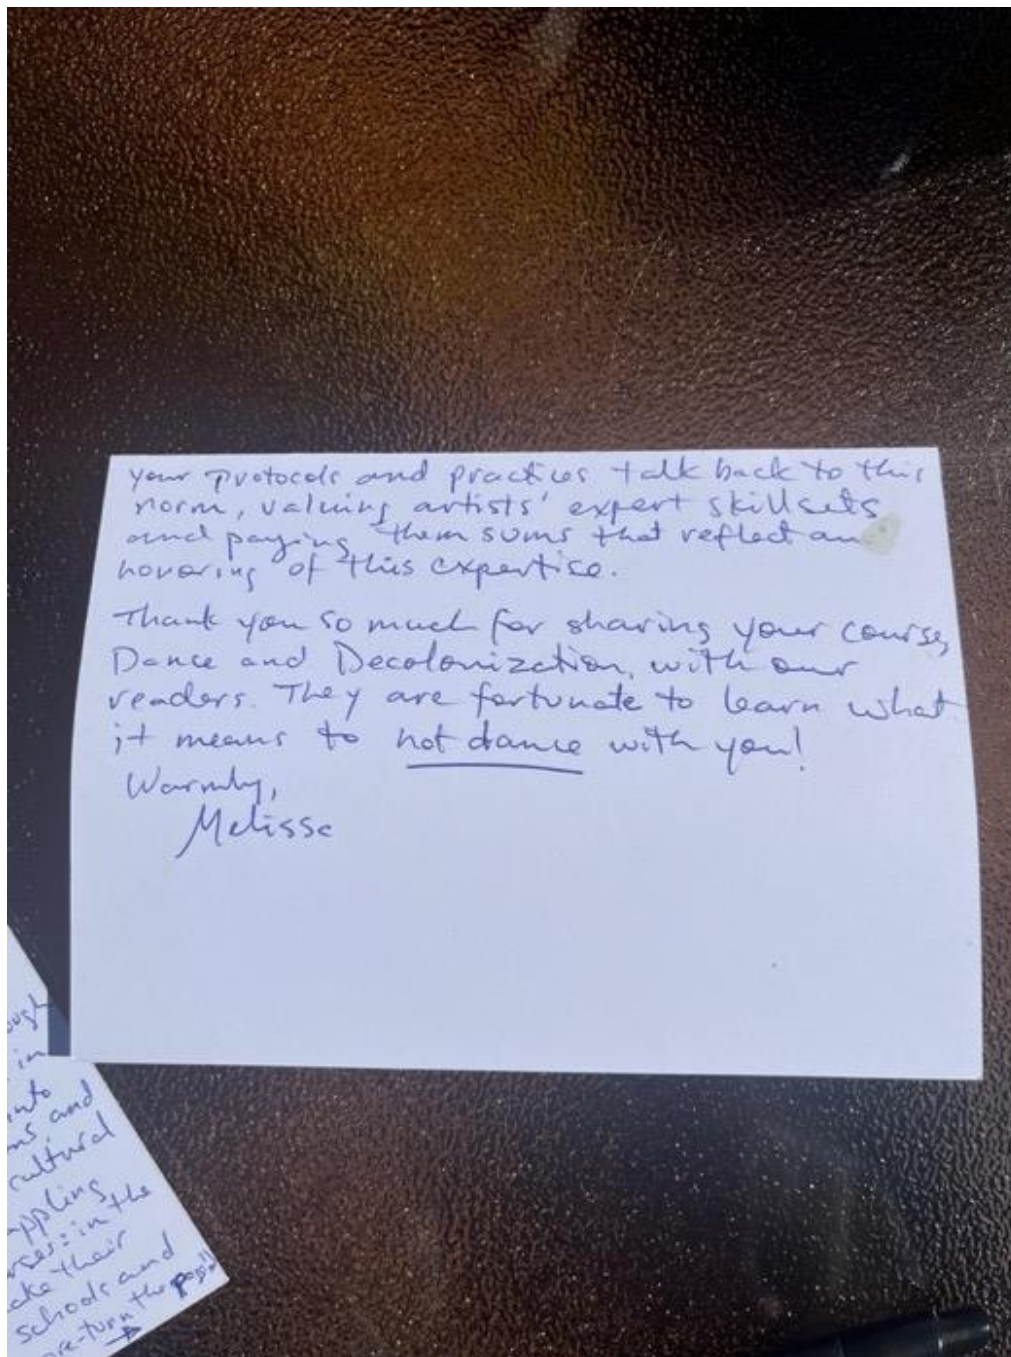 your protocols and practices talk back to this
norm, valuing artists' expert skillsets
and paying them sums that reflect an
honoring of this expertise.
Thank you so much for sharing your course,
Dance and Decolonization, with our
readers. They are fortunate to learn what
it means to not dance with you!
Warmly,
Melissa
in
and
cultural
in the
their
schools and
turn the page"